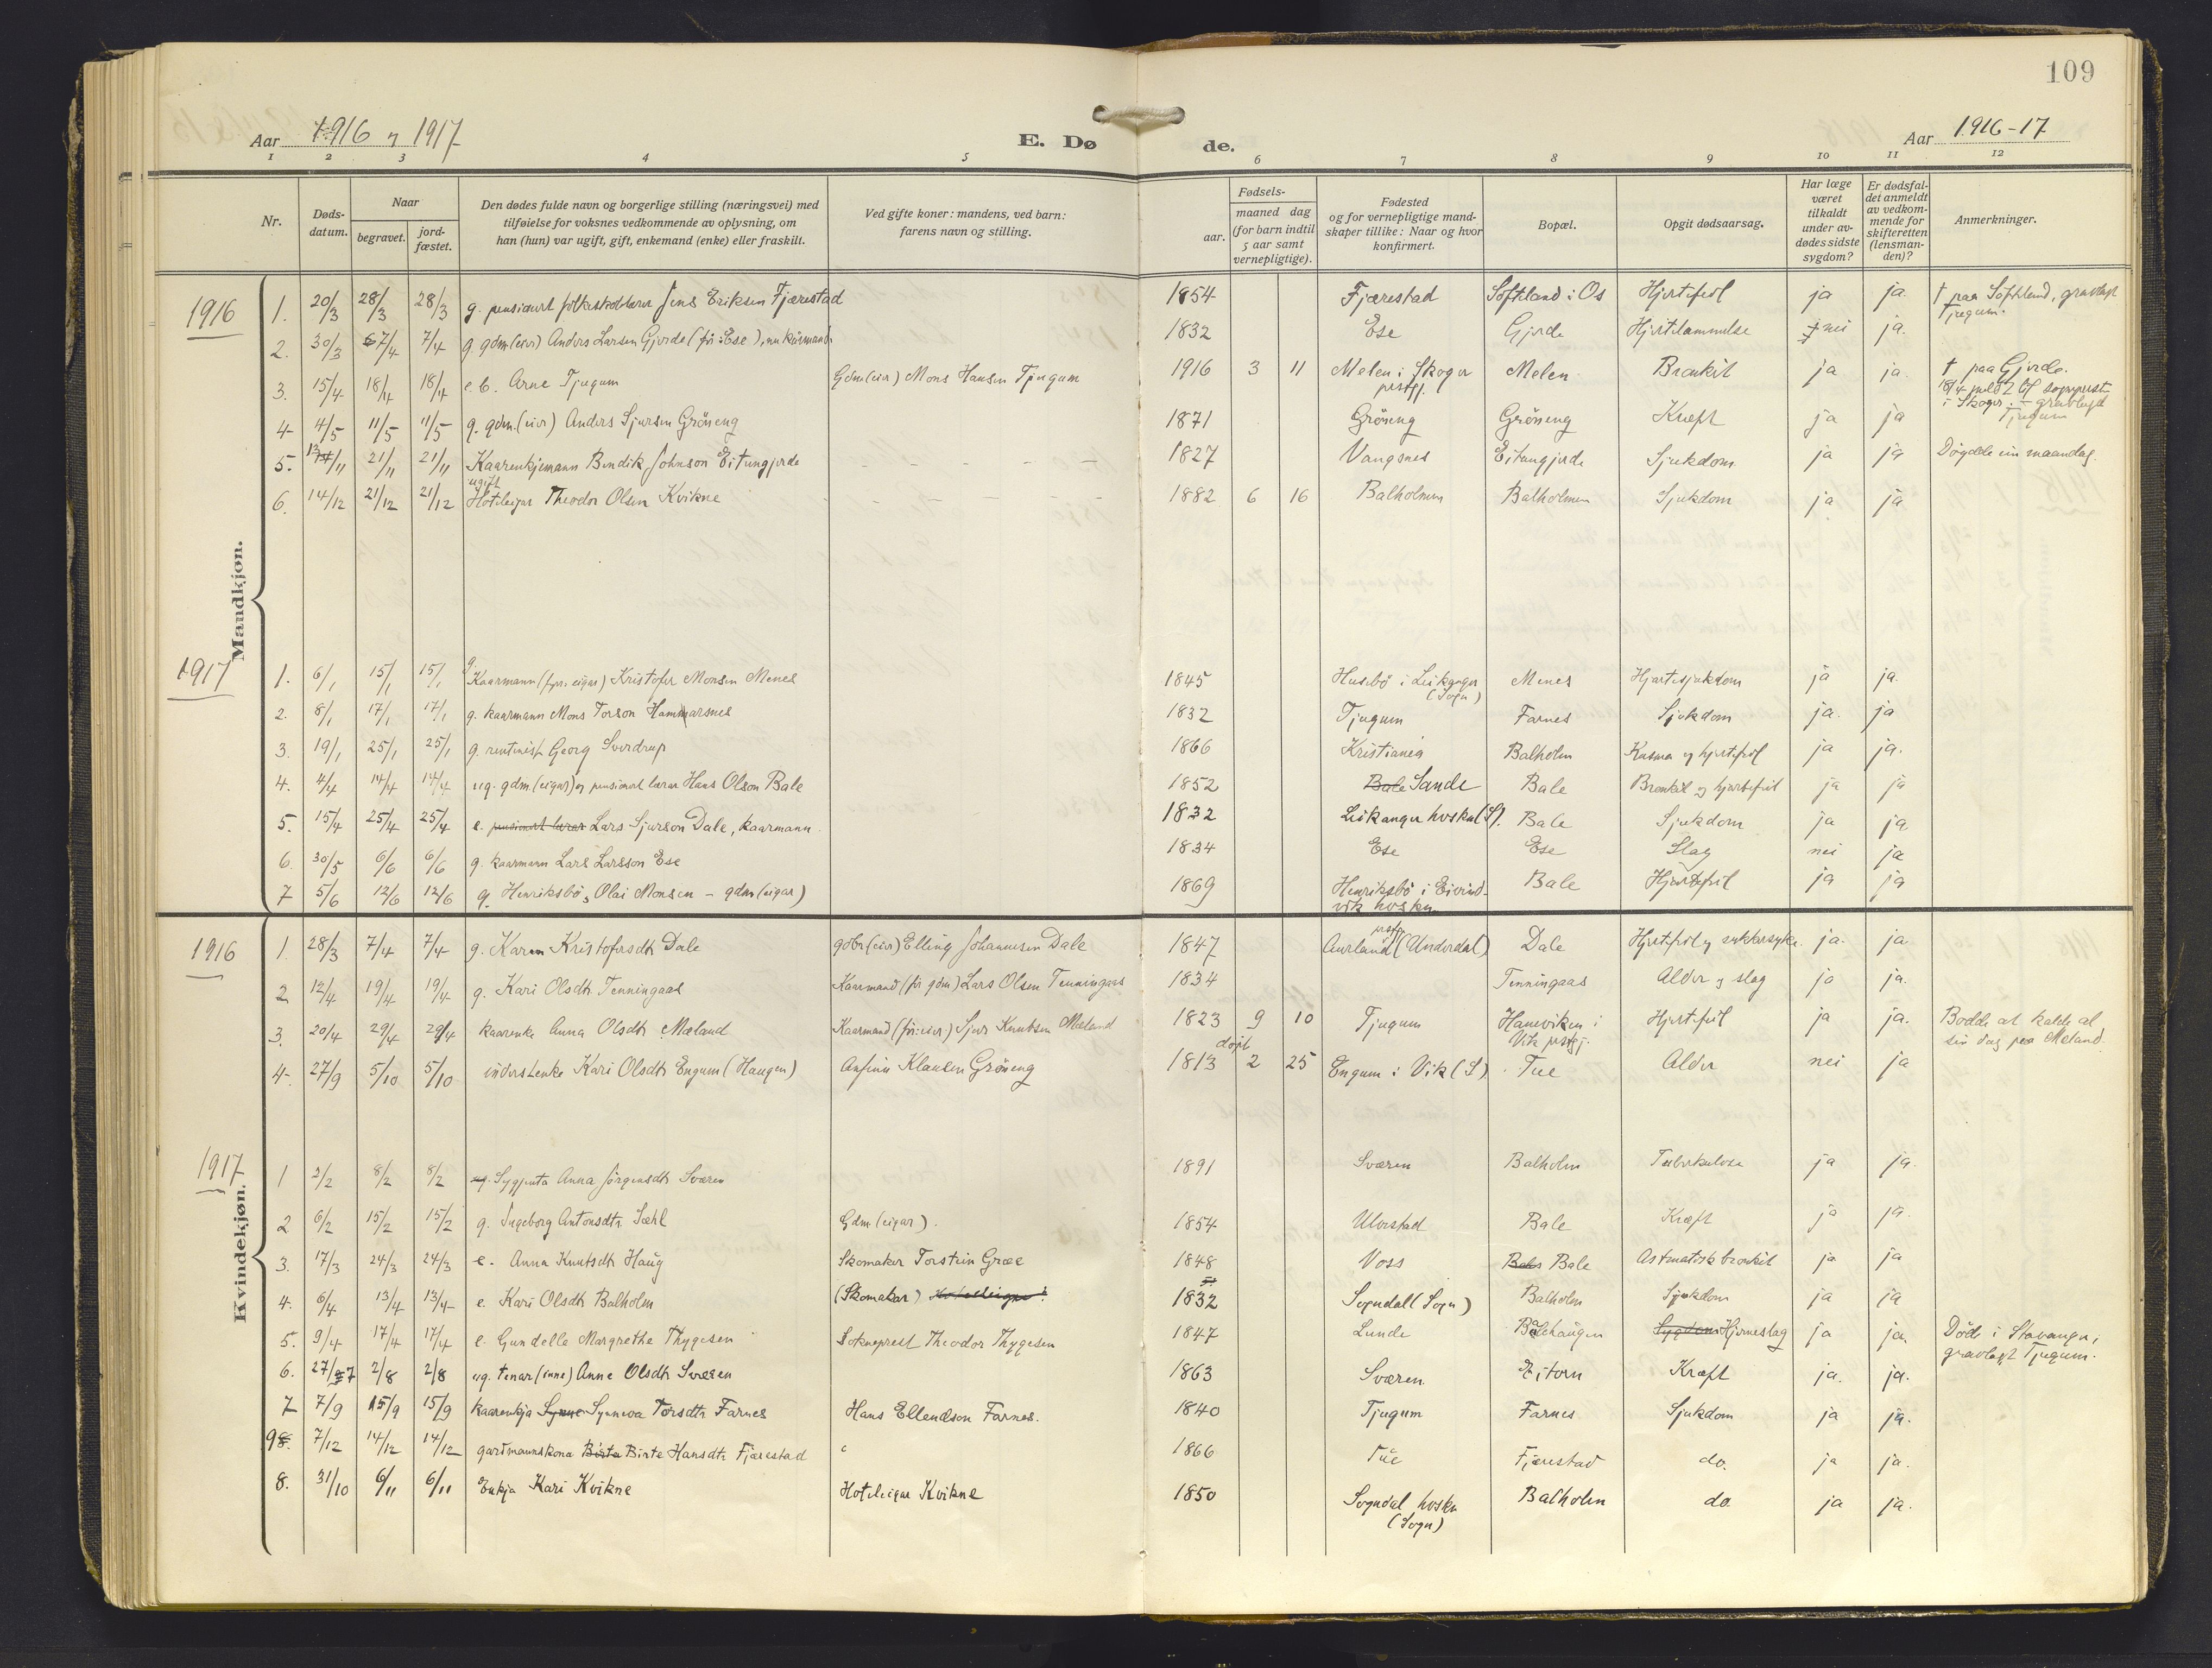 109
Aar 1916 og 1917
E. Dø de.
Aar 1916-17
1 2 3 4 5 6 7 8 9 10 11 12
Nr.
Døds-datum.
Naar
begravet.
jord-fæstet.
Den dødes fulde navn og borgerlige stilling (næringsvei) med
tilføielse for voksnes vedkommende av oplysning, om
han (hun) var ugift, gift, enkemand (enke) eller fraskilt.
Ved gifte koner: mandens, ved barn:
farens navn og stilling.
Fødsels-
aar.
maaned dag
(for barn indtil
5 aar samt
vernepligtige).
Fødested
og for vernepligtige mand-
skaper tillike: Naar og hvor
konfirmert.
Bopæl.
Opgit dødsaarsag.
Har læge
været
tilkaldt
under av-
dødes sidste
sygdom?
Er dødsfal-
det anmeldt
av vedkom-
mende for
skifteretten
(lensman-
den)?
Anmerkninger.
Mandkjøn.
1916
1. 20/3 28/3 28/3 g. pensionert folkeskolelærer Jens Eriksen Fjærestad 1854 Fjærestad Søfteland i Os Hjertefeil ja ja. † paa Søfteland, gravlagt Tjugum.
2. 30/3 7/4 7/4 g. gdm (eier) Anders Larsen Gjerde (før: Ese), nu kaarmand 1832 Ese Gjerde Hjertelammelse nei ja.
3. 15/4 18/4 18/4 e.b. Arne Tjugum Gdm (eier) Mons Hansen Tjugum 1916 3 11 Melen i Skoger prstgj. Melen Bronkit ja ja † paa Gjerde.
i Skoger. - gravlagt Tjugum
4 4/5 11/5 11/5 g. gdm. (eier) Anders Sjursen Grøneng 1871 Grøneng Grøneng Kræft ja ja
5. 13/11 21/11 21/11 Kaarenkjemann Bendik Johnson Eitungjerde 1827 Vangsnes Eitungjerde Sjukdom ja ja Døydde ein maandag.
6. 14/12 21/12 21/12 ugift Hoteleigar Theodor Olsen Kvikne 1882 6 16 Balholmen Balholmen Sjukdom ja ja
1917
1. 6/1 15/1 15/1 g. Kaarmann (fyrr eigar) Kristofer Monsen Menes 1845 Husebø i Leikanger (Sogn) Menes Hjartesjukdom ja ja.
2. 8/1 17/1 17/1 g. kaarmann Mons Torson Hammarsnes 1832 Tjugum Farnes Sjukdom ja. ja
3. 19/1 25/1 25/1 g. rentenist Georg Sverdrup 1866 Kristiania Balholm Kasma og hjertefeil ja ja.
4. 4/4 14/4 14/4 ug. gdm (eigar) og pensionert lærar Hans Olson Bale 1852 Bale Sande Bale Bronkit og hjartefeil ja ja
5. 15/4 25/4 25/4 e. pensionert lærar Lars Sjurson Dale, kaarmann. 1832 Leikanger hvskn (S). Bale Sjukdom ja ja
6. 30/5 6/6 6/6 g. kaarmann Lars Larsson Ese 1834 Ese Ese Slag nei ja
7 5/6 12/6 12/6 g. Henriksbø, Olai Monsen - gdm (eigar) 1869 Henriksbø i Eivind-vik hvskn Bale Hjartefeil ja ja
Kvindekjøn.
1916
1. 28/3 7/4 7/4 g. Karen Kristofersdtr Dale gdbr (eier) Elling Johannesen Dale 1847 Aurland prstgj (Underdal) Dale Hjertefeil og sukkersyke ja. ja
2 12/4 19/4 19/4 g. Kari Olsdtr Tenningaas Kaarmand (før gdm) Lars Olsen Tenningaas 1834 Tenningaas Alder og slag ja ja.
3. 20/4 29/4 29/4 kaarenke Anna Olsdtr Mæland Kaarmand (før: eier) Sjur Knutsen Mæland 1823 9 10 Tjugum Hanevikin i Vik prstgj. Hjertefeil ja ja. Bodde at kalde al sin dag paa Mæland.
4. 27/9 5/10 5/10 inderstenke Kari Olsdtr Engum (Haugen) Anfinn Klausen Grøneng 1813 døpt 2 25 Engum i Vik (S) Tue Alder nei ja
1917
1 2/2 8/2 8/2 ug. Sygjenta Anna Jørgensdtr Sværen 1891 Sværen Balholm Tuberkulose ja ja.
2 6/2 15/2 15/2 g. Ingeborg Antonsdtr. Sæhl Gdm (eigar). 1854 Ulvestad Bale Kræft ja ja.
3. 17/3 24/3 24/3 e. Anna Knutsdtr Haug Skomaker Torstein Græe 1848 Voss Bale Astmatisk bronkit ja ja
4. 6/4 13/4 13/4 e. Kari Olsdtr Balholm (Skomakar) 1832 Sogndal (Sogn) Balholm Sjukdom ja ja
5. 9/4 17/4 17/4 e. Gundelle Margrethe Thygesen Sokneprest Theodor Thygesen 1847 Lunde Balehaugen Sygdom Hjerneslag ja ja. Døde i Stavanger, gravlagt Tjugum.
6. 27/7 2/8 2/8 ug. tenar (inne) Anne Olsdtr Sværen 1863 Sværen Eitorn Kræft ja. ja.
7 7/9 15/9 15/9 kaarenkja Synneva Torsdtr Farnes Hans Ellendson Farnes. 1840 Tjugum Farnes Sjukdom ja ja.
98. 7/12 14/12 14/12 gardmannskona Birta Birte Hansdtr Fjærestad 1866 Tue Fjærestad do. ja ja.
8. 31/10 6/11 6/11 Enkja Kari Kvikne Hoteleigar Kvikne 1850 Sogndal hvskn (Sogn) Balholm do. ja ja.